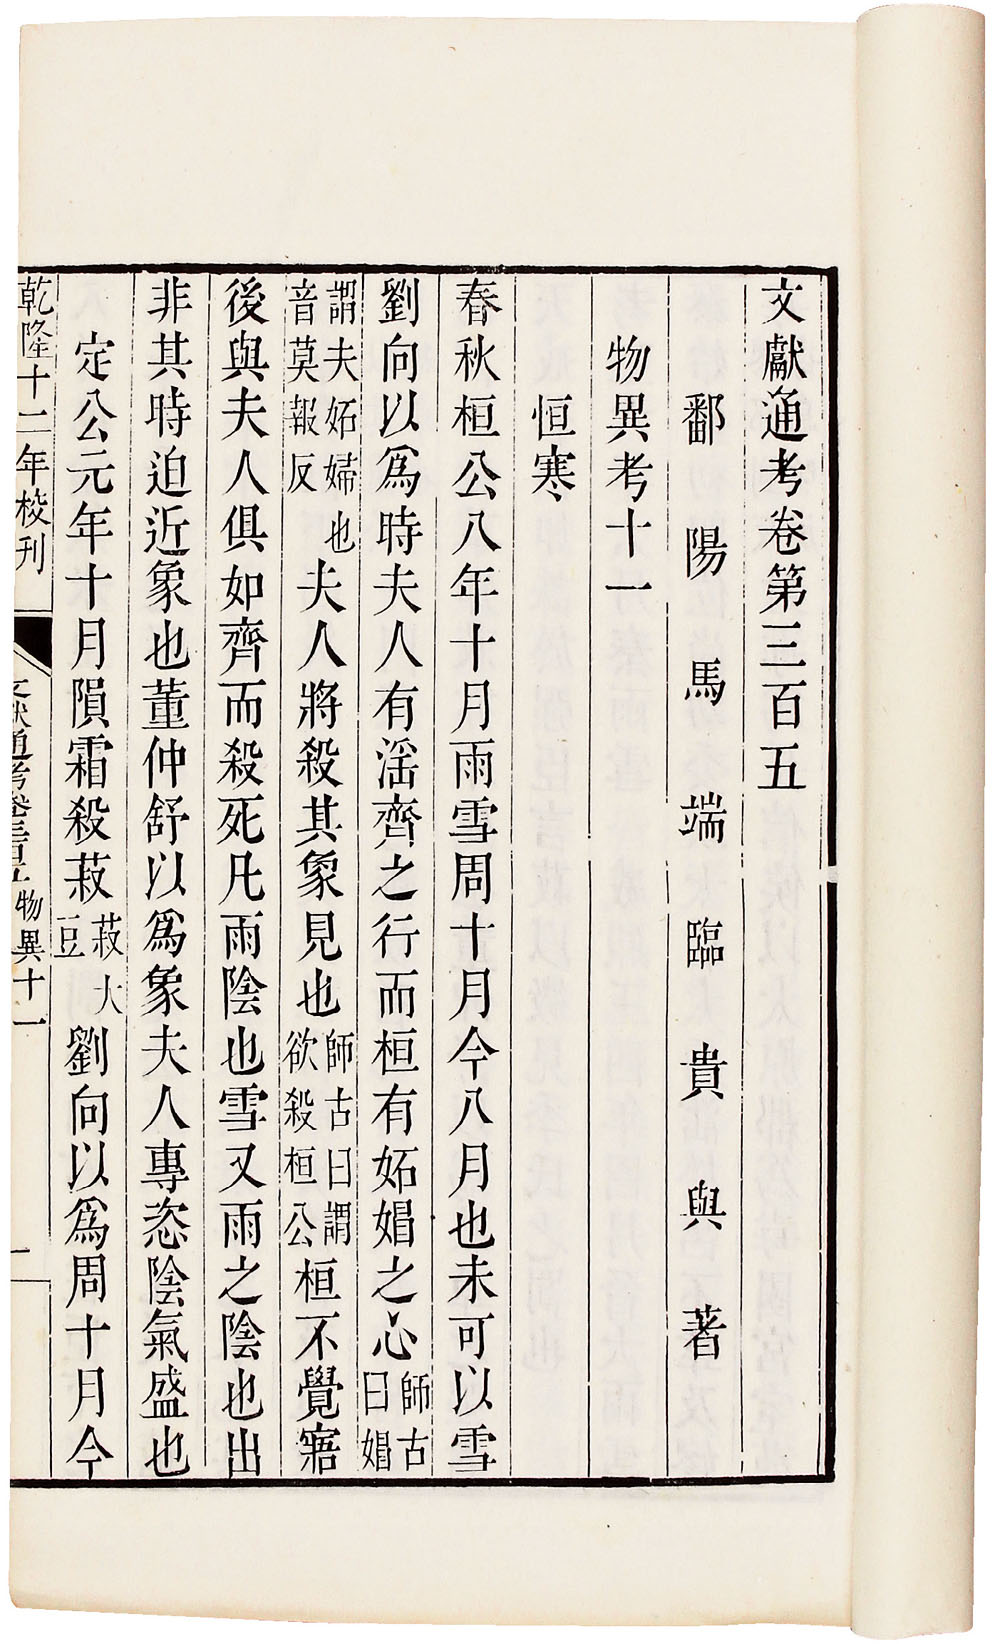 文獻通考卷第三百五
鄱陽馬端臨貴與著
物異考十一
恒寒
春秋桓公八年十月雨雪周十月今八月也未可以雪
劉向以爲時夫人有滛齊之行而桓有妬媢之心師古曰媢
謂夫妬婦也音莫報反夫人將殺其象見也師古曰謂欲殺桓公桓不覺寤
後與夫人俱如齊而殺死凡雨陰也雪又雨之陰也出
非其時迫近象也董仲舒以爲象夫人專恣陰氣盛也
定公元年十月隕霜殺菽菽大豆劉向以爲周十月今
乾隆十二年校刊
文獻通考卷三百五 物異十一
一